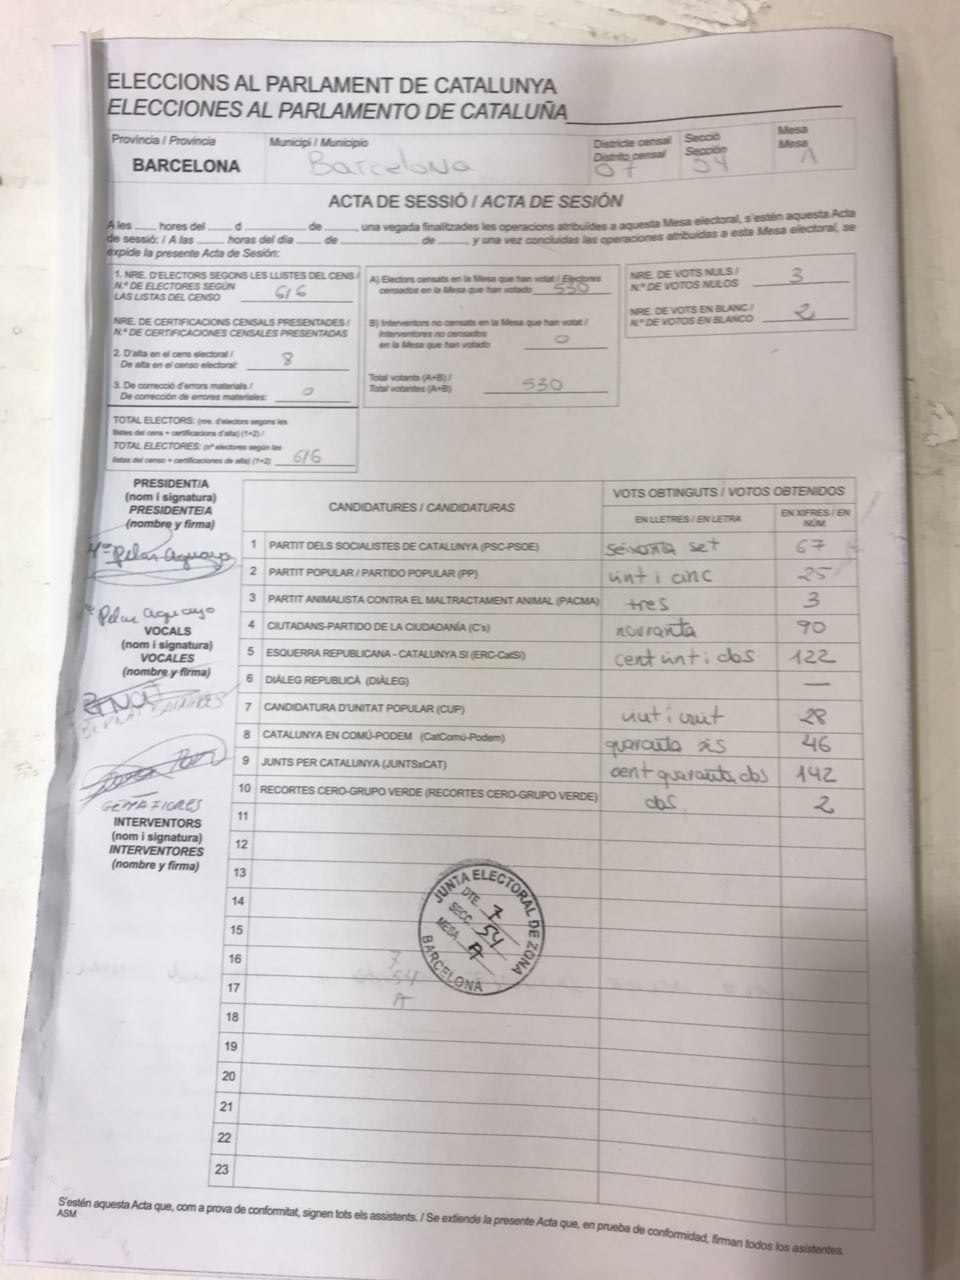 ELECCIONS AL PARLAMENT DE CATALUNYA
ELECCIONES AL PARLAMENTO DE CATALUÑA
Província / Provincia
BARCELONA
Municipi / Municipio
Barcelona
Districte censal
Distrito censal
07
Secció
Sección
54
Mesa
Mesa
A
ACTA DE SESSIÓ / ACTA DE SESIÓN
A les ____ hores del ____ d ____ de ____, una vegada finalitzades les operacions atribuïdes a aquesta Mesa electoral, s'estén aquesta Acta
de sessió: / A las ____ horas del día ____ de ____ de ____ y una vez concluidas las operaciones atribuidas a esta Mesa electoral, se
expide la presente Acta de Sesión:
1. NRE. D'ELECTORS SEGONS LES LLISTES DEL CENS /
N.º DE ELECTORES SEGÚN
LAS LISTAS DEL CENSO 616
NRE. DE CERTIFICACIONS CENSALS PRESENTADES /
N.º DE CERTIFICACIONES CENSALES PRESENTADAS
2. D'alta en el cens electoral /
De alta en el censo electoral: 8
3. De correcció d'errors materials /
De corrección de errores materiales: 0
TOTAL ELECTORS: (nre. d'electors segons les
llistes del cens + certificacions d'alta) (1+2) /
TOTAL ELECTORES: (nº electores según las
listas del censo + certificaciones de alta) (1+2) 616
A) Electors censats en la Mesa que han votat / Electores
censados en la Mesa que han votado 530
B) Interventors no censats en la Mesa que han votat /
Interventores no censados
en la Mesa que han votado 0
Total votants (A+B) /
Total votantes (A+B) 530
NRE. DE VOTS NULS /
N.º DE VOTOS NULOS 3
NRE. DE VOTS EN BLANC /
N.º DE VOTOS EN BLANCO 2
PRESIDENT/A
(nom i signatura)
PRESIDENTE/A
(nombre y firma)
Mª Pilar Aguayo
Mª Pilar Aguayo
VOCALS
(nom i signatura)
VOCALES
(nombre y firma)
BERNAT
GEMA FLORES
INTERVENTORS
(nom i signatura)
INTERVENTORES
(nombre y firma)
CANDIDATURES / CANDIDATURAS
VOTS OBTINGUTS / VOTOS OBTENIDOS
EN LLETRES / EN LETRA
EN XIFRES / EN NÚM.
1 PARTIT DELS SOCIALISTES DE CATALUNYA (PSC-PSOE) seixanta set 67
2 PARTIT POPULAR / PARTIDO POPULAR (PP) vint i cinc 25
3 PARTIT ANIMALISTA CONTRA EL MALTRACTAMENT ANIMAL (PACMA) tres 3
4 CIUTADANS-PARTIDO DE LA CIUDADANÍA (C's) novranta 90
5 ESQUERRA REPUBLICANA - CATALUNYA SÍ (ERC-CatSí) cent vint i dos 122
6 DIÀLEG REPUBLICÀ (DIÀLEG) —
7 CANDIDATURA D'UNITAT POPULAR (CUP) vint i vuit 28
8 CATALUNYA EN COMÚ-PODEM (CatComú-Podem) quaranta sis 46
9 JUNTS PER CATALUNYA (JUNTSxCAT) cent quaranta dos 142
10 RECORTES CERO-GRUPO VERDE (RECORTES CERO-GRUPO VERDE) dos 2
11
12
13
14
15
16
17
18
19
20
21
22
23
JUNTA ELECTORAL DE ZONA
DTE. 7
SECC. 54
MESA A
BARCELONA
7
54
A
S'estén aquesta Acta que, com a prova de conformitat, signen tots els assistents. / Se extiende la presente Acta que, en prueba de conformidad, firman todos los asistentes.
ASM